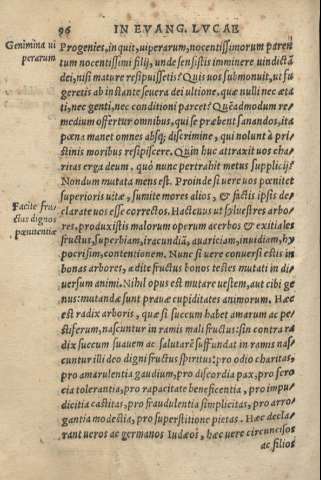 96 IN EVANG. LVCAE
Genimina ui
perarum
Progenies, inquit, uiperarum, nocentissimorum paren
tum nocentissimi filij, unde sensistis imminere uindictā
dei, nisi mature resipuissetis? Quis uos submonuit, ut fu
geretis ab instante seuera dei ultione, quæ nulli nec æta
ti, nec genti, nec conditioni parcet? Quēadmodum re
medium offertur omnibus, qui se præbent sanandos, ita
pœna manet omnes absq; discrimine, qui nolunt à pri
stinis moribus resipiscere. Quin huc attraxit uos cha
ritas erga deum, quò nunc pertrahit metus supplicij?
Nondum mutata mens est. Proinde si uere uos pœnitet
superioris uitæ, sumite mores alios, & factis ipsis de
clarate uos esse correctos. Hactenus ut syluestres arbo
Facite fru
ctus dignos
pœnitentiæ
res, produxistis malorum operum acerbos & exitiales
fructus, superbiam, iracundiā, auariciam, inuidiam, hy
pocrisim, contentionem. Nunc si uere conuersi estis in
bonas arbores, ædite fructus bonos testes mutati in di
uersum animi. Nihil opus est mutare uestem, aut cibi ge
nus: mutandæ sunt prauæ cupiditates animorum. Hæc
est radix arboris, quæ si succum habet amarum ac pe
stiferum, nascuntur in ramis mali fructus: sin contra ra
dix succum suauem ac salutarē suffundat in ramis nas
cuntur illi deo digni fructus spiritus: pro odio charitas,
pro amarulentia gaudium, pro discordia pax, pro fero
cia tolerantia, pro rapacitate beneficentia, pro impu
dicitia castitas, pro fraudulentia simplicitas, pro arro
gantia modestia, pro superstitione pietas. Hæc decla
rant ueros ac germanos Iudæos, hæc uere circuncisos
ac filios